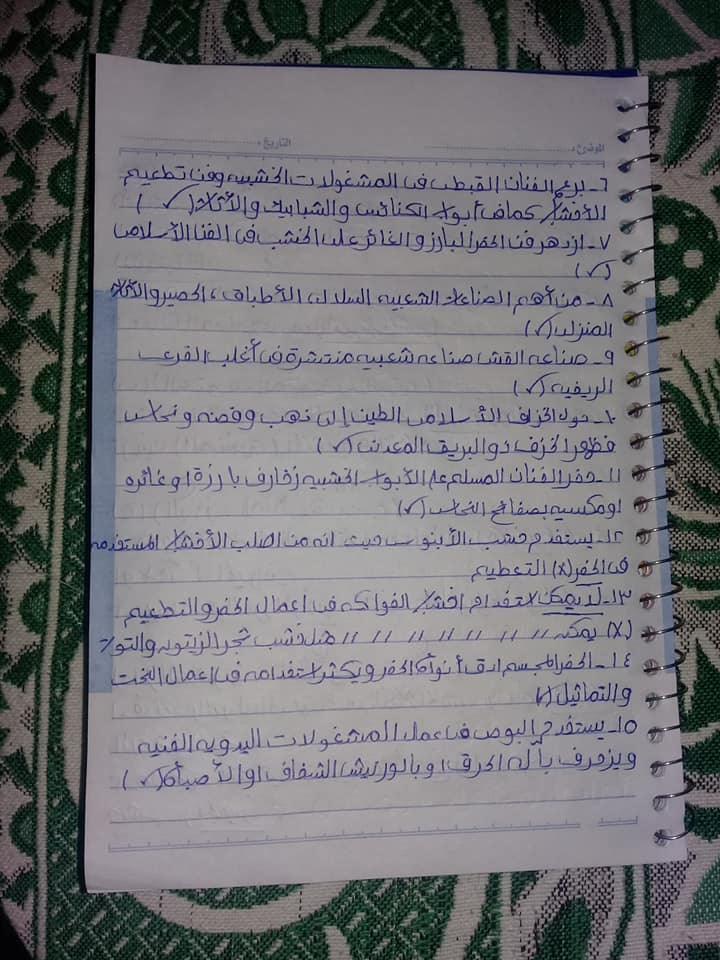 الموضوع: التاريخ:
٦- برع الفنان القبطى فى المشغولات الخشبيه وفن تطعيم
الأخشاب كما فى أبواب الكنائس والشبابيك والأثاث (✓)
٧- ازدهر فن الحفر البارز والغائر على الخشب فى الفن الأسلامى
(✓)
٨- من أهم الصناعات الشعبيه السلال، الأطباق، الحصير والأثاث
المنزلى (✓)
٩- صناعه القش صناعه شعبيه منتشرة فى أغلب القرى
الريفيه (✓)
١٠- حول الخزاف الأسلامى الطين إلى ذهب وفضه ونحاس
فظهر الخزف ذو البريق المعدنى (✓)
١١- حفر الفنان المسلم على الأبواب الخشبيه زخارف بارزة او غائره
او مكسيه بصفائح النحاس (✓)
١٢- يستخدم خشب الأبنوس حيث انه من اصلب الأخشاب المستخدمه
فى الحفر (x) التطعيم
١٣- لا يمكن استخدام اخشاب الفواكه فى اعمال الحفر والتطعيم
(x) يمكن // // // // // // // مثل خشب شجر الزيتون والتوت
١٤- الحفر المجسم ادق أنواع الحفر ويكثر استخدامه فى اعمال النحت
والتماثيل (✓)
١٥- يستخدم البوص فى عمل المشغولات اليدويه الفنيه
ويزخرف بآله الحرق او بالورنيش الشفاف او الأصباغ (✓)